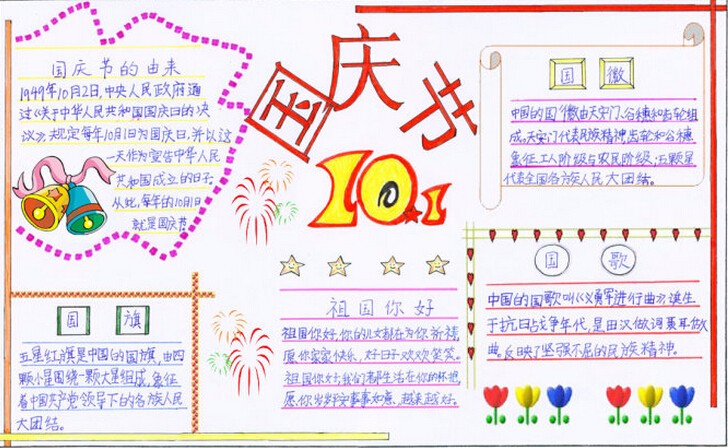 国庆节
10.1
国庆节的由来
1949年10月2日,中央人民政府通
过《关于中华人民共和国国庆日的决
议》,规定每年10月1日为国庆日,并以这
一天作为宣告中华人民
共和国成立的日子。
从蛇,每年的10月1日
就是国庆节
国徽
中国的国徽由天安门、谷穗和齿轮组
成,天安门代表民族精神,齿轮和谷穗
象征工人阶级与农民阶级,五颗星
代表全国各族人民大团结。
国旗
五星红旗是中国的国旗,由四
颗小星围绕一颗大星组成,象征
着中国共产党领导下的各族人民
大团结。
祖国你好
祖国你好,你的儿女都在为你祈祷,
愿你家家快乐,好日子欢欢笑笑。
祖国你好,我们都生活在你的怀抱,
愿你岁岁平安事事如意,越来越好。
国歌
中国的国歌叫《义勇军进行曲》,诞生
于抗日战争年代,是田汉做词聂耳做
曲。反映了坚强不屈的民族精神。